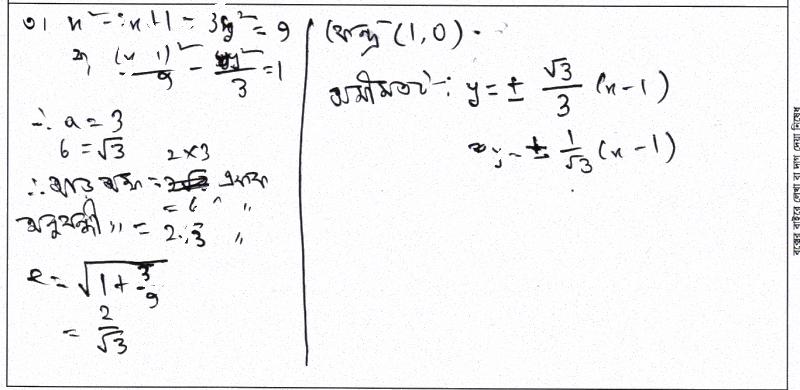 ৩। x² - 2x + 1 - 3y² = 9
বা, (x - 1)²/9 - y²/3 = 1
∴ a = 3
b = √3
∴ আড় অক্ষ = 2×3 একক
= 6 " "
অনুবন্ধী " = 2√3 "
e = √(1 + 3/9)
= 2/√3
কেন্দ্র (1, 0)
অসীমতট : y = ± √3/3 (x - 1)
বা y = ± 1/√3 (x - 1)
বক্সের বাইরে লেখা বা দাগ দেয়া নিষেধ